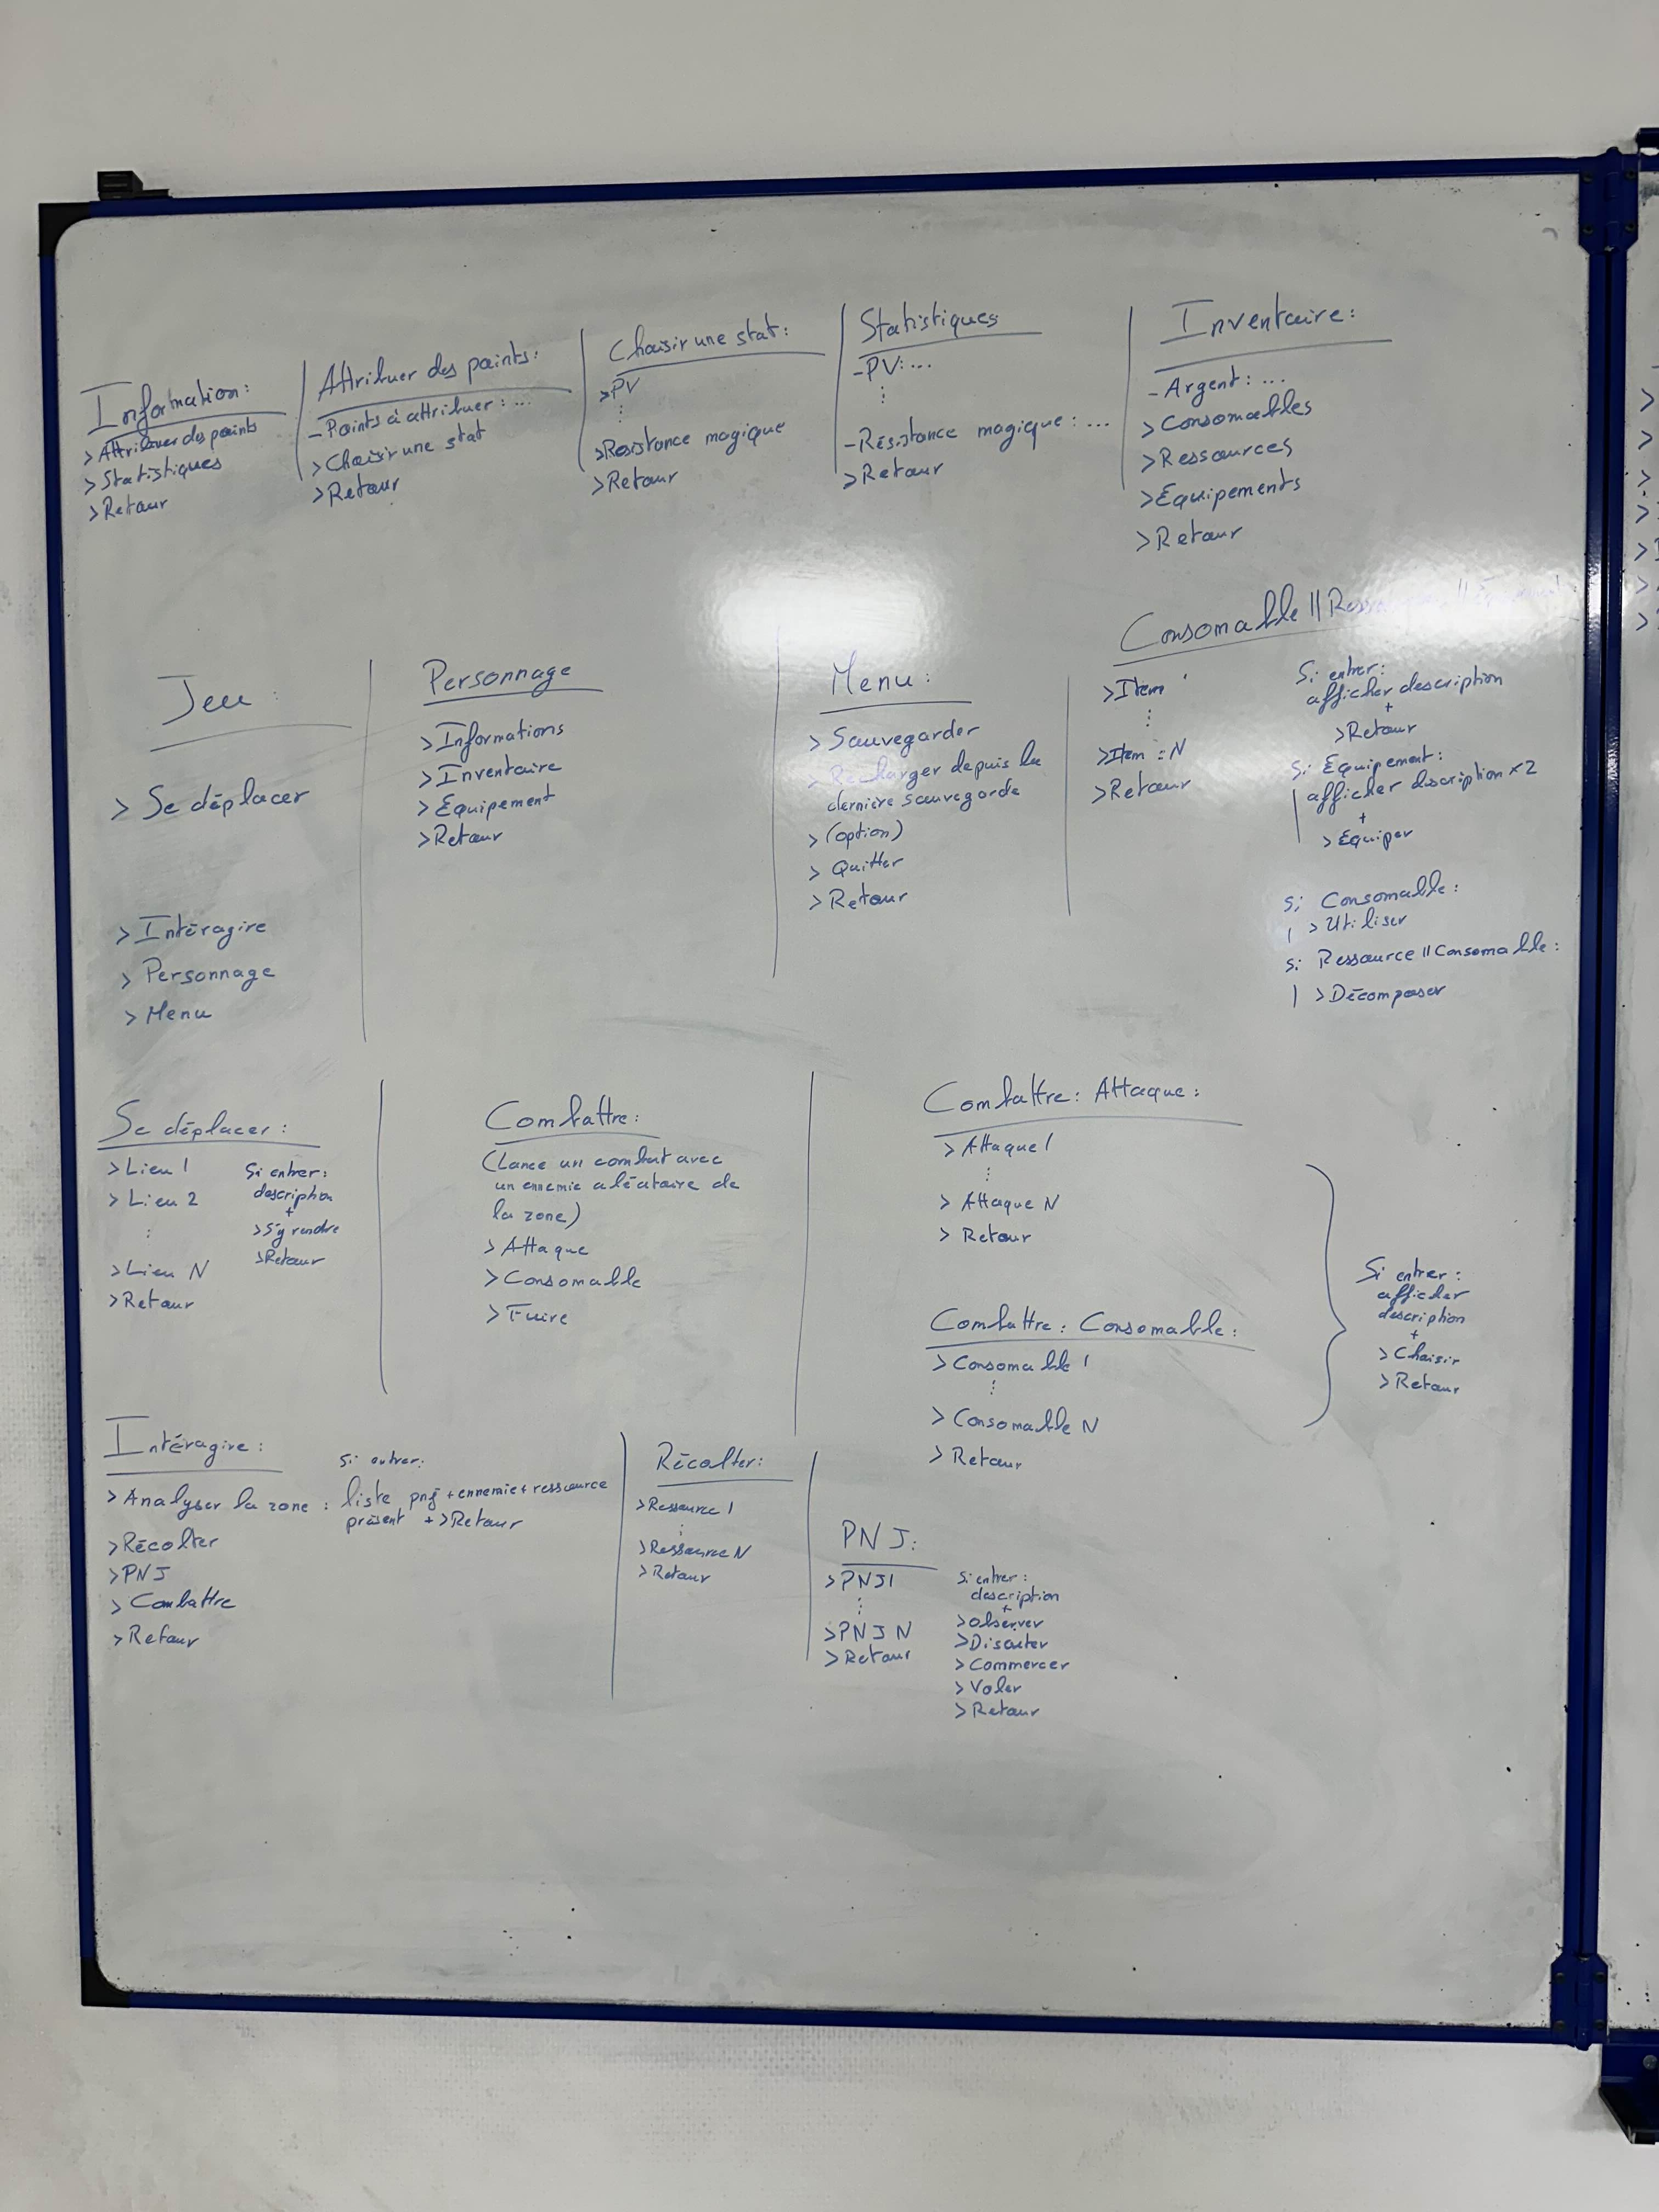 Information:
> Attribuer des points
> Statistiques
> Retour
Attribuer des points:
- Points à attribuer : ...
> Choisir une stat
> Retour
Choisir une stat:
> PV
⋮
> Resistance magique
> Retour
Statistiques
- PV: ...
⋮
- Résistance magique : ...
> Retour
Inventaire:
- Argent : ...
> Consomables
> Ressources
> Equipements
> Retour
Jeu :
> Se déplacer
> Intéragire
> Personnage
> Menu
Personnage
> Informations
> Inventaire
> Equipement
> Retour
Menu :
> Sauvegarder
> Recharger depuis la
dernière sauvegarde
> (option)
> Quitter
> Retour
Consomable ||
> Item
⋮
> Item : N
> Retour
Si entrer:
afficher description
+
> Retour
Si Equipement:
afficher description x2
+
> Equiper
Si Consomable:
> Utiliser
Si Ressource || Consomable:
> Décomposer
Se déplacer :
> Lieu 1
> Lieu 2
⋮
> Lieu N
> Retour
Si entrer:
description
+
> S'y rendre
> Retour
Combattre:
(Lance un combat avec
un ennemie aléatoire de
la zone)
> Attaque
> Consomable
> Fuire
Combattre: Attaque:
> Attaque 1
⋮
> Attaque N
> Retour
Combattre: Consomable:
> Consomable 1
⋮
> Consomable N
> Retour
Si entrer:
afficher
description
+
> Choisir
> Retour
Intéragire:
> Analyser la zone :
Si entrer:
liste pnj + ennemie + ressource
présent + > Retour
> Récolter
> PNJ
> Combattre
> Retour
Récolter:
> Ressource 1
⋮
> Ressource N
> Retour
PNJ:
> PNJ1
⋮
> PNJ N
> Retour
Si entrer:
description
+
> Observer
> Discuter
> Commercer
> Voler
> Retour